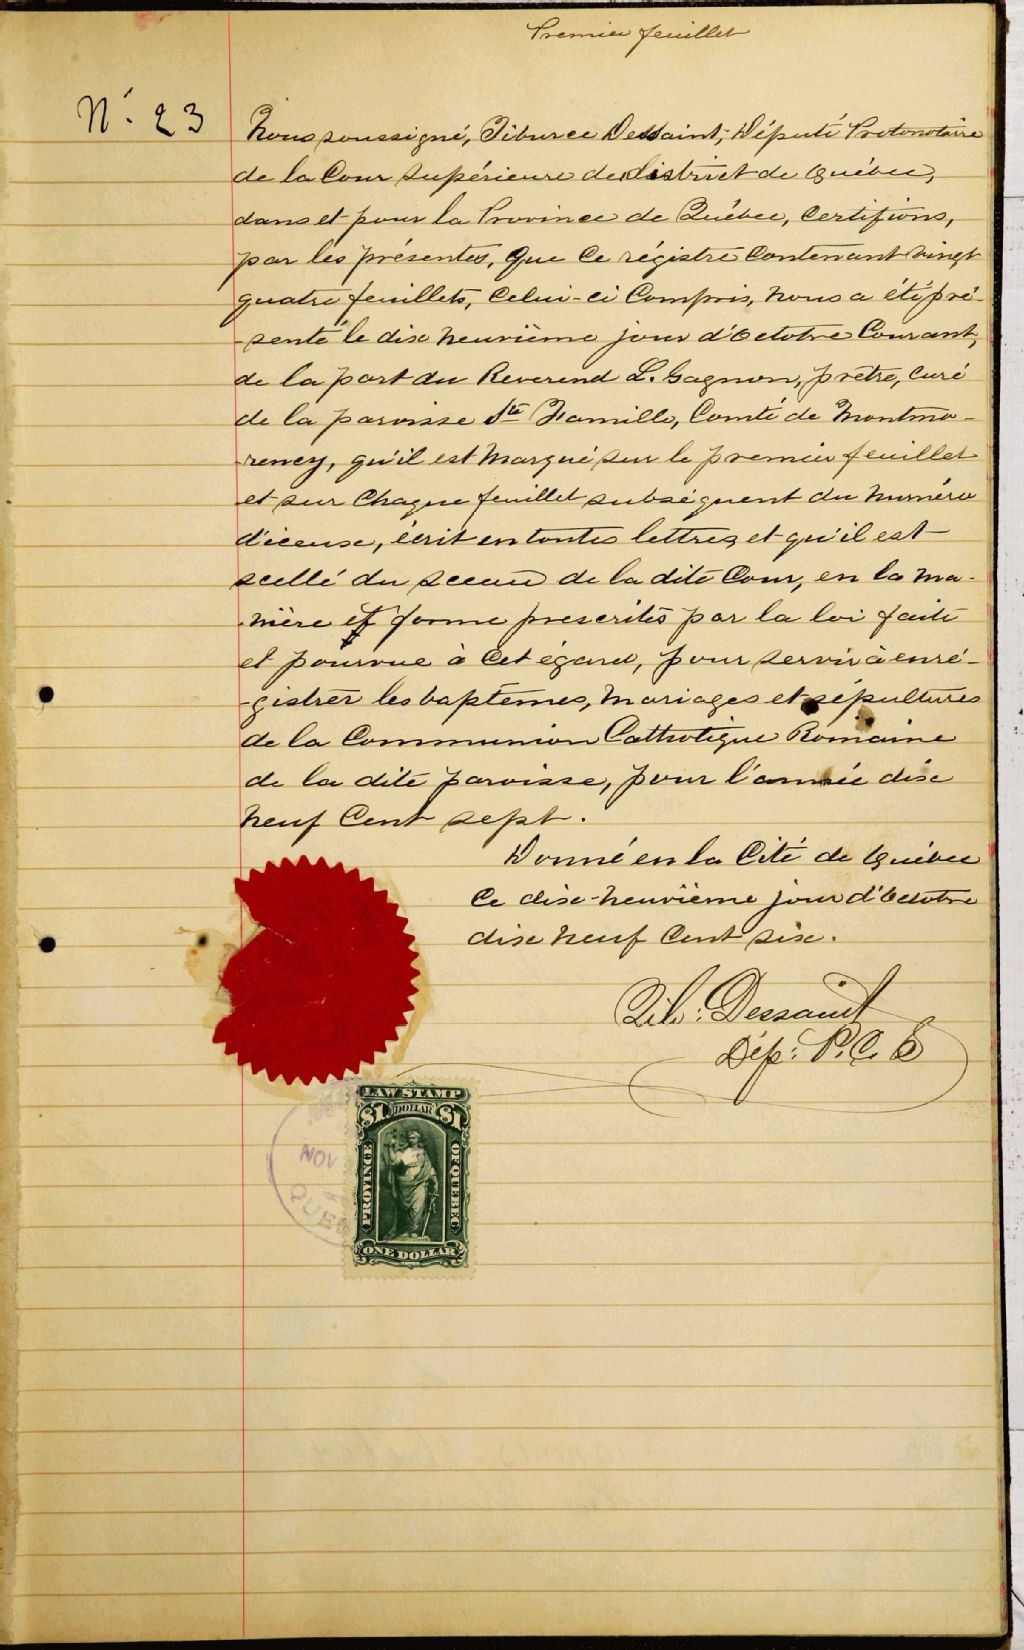 Premier feuillet
N° 23
Nous soussigné, Tiburce Dessaint, Député Protonotaire
de la Cour supérieure du district de Québec,
dans et pour la Province de Québec, Certifions,
par les présentes, que ce régistre contenant vingt
quatre feuillets, celui-ci compris, nous a été pré-
-senté le dix neuvième jour d'Octobre Courant,
de la part du Reverend L. Gagnon, prêtre, curé
de la paroisse Ste Famille, Comté de Montmo-
-rency, qu'il est marqué sur le premier feuillet
et sur chaque feuillet subséquent du numéro
d'iceux, écrit en toutes lettres et qu'il est
scellé du sceau de la dite Cour, en la ma-
nière et forme prescrites par la loi faite
et pourvue à cet égard, pour servir à enré-
-gistrer les baptêmes, mariages et sépultures
de la Communion Catholique Romaine
de la dite paroisse, pour l'année dix
neuf Cent sept.
Donné en la Cité de Québec
ce dix-neuvième jour d'Octobre
dix neuf Cent six.
Tib: Dessaint
Dép: P.C.S
LAW STAMP
$1 DOLLAR $1
PROVINCE OF QUEBEC
ONE DOLLAR
NOV
QUE